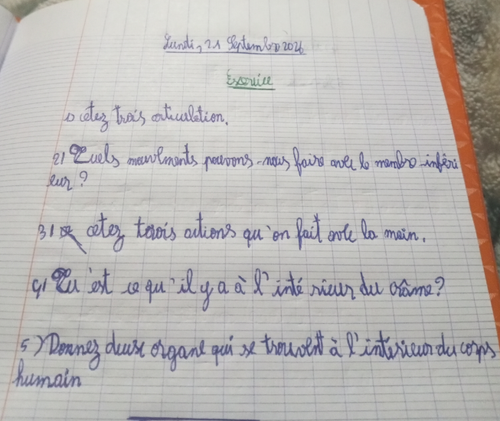 Lundi, 21 Septembre 2026
Exercice
1) citez trois articulation.
2) Quels mouvements pouvons-nous faire avec le membre inféri
eur ?
3) citez trois actions qu'on fait avec la main.
4) Qu'est ce qu'il y a à l'intérieur du crâme ?
5) Donnez deuse organe qui se trouvent à l'interieur du corps
humain